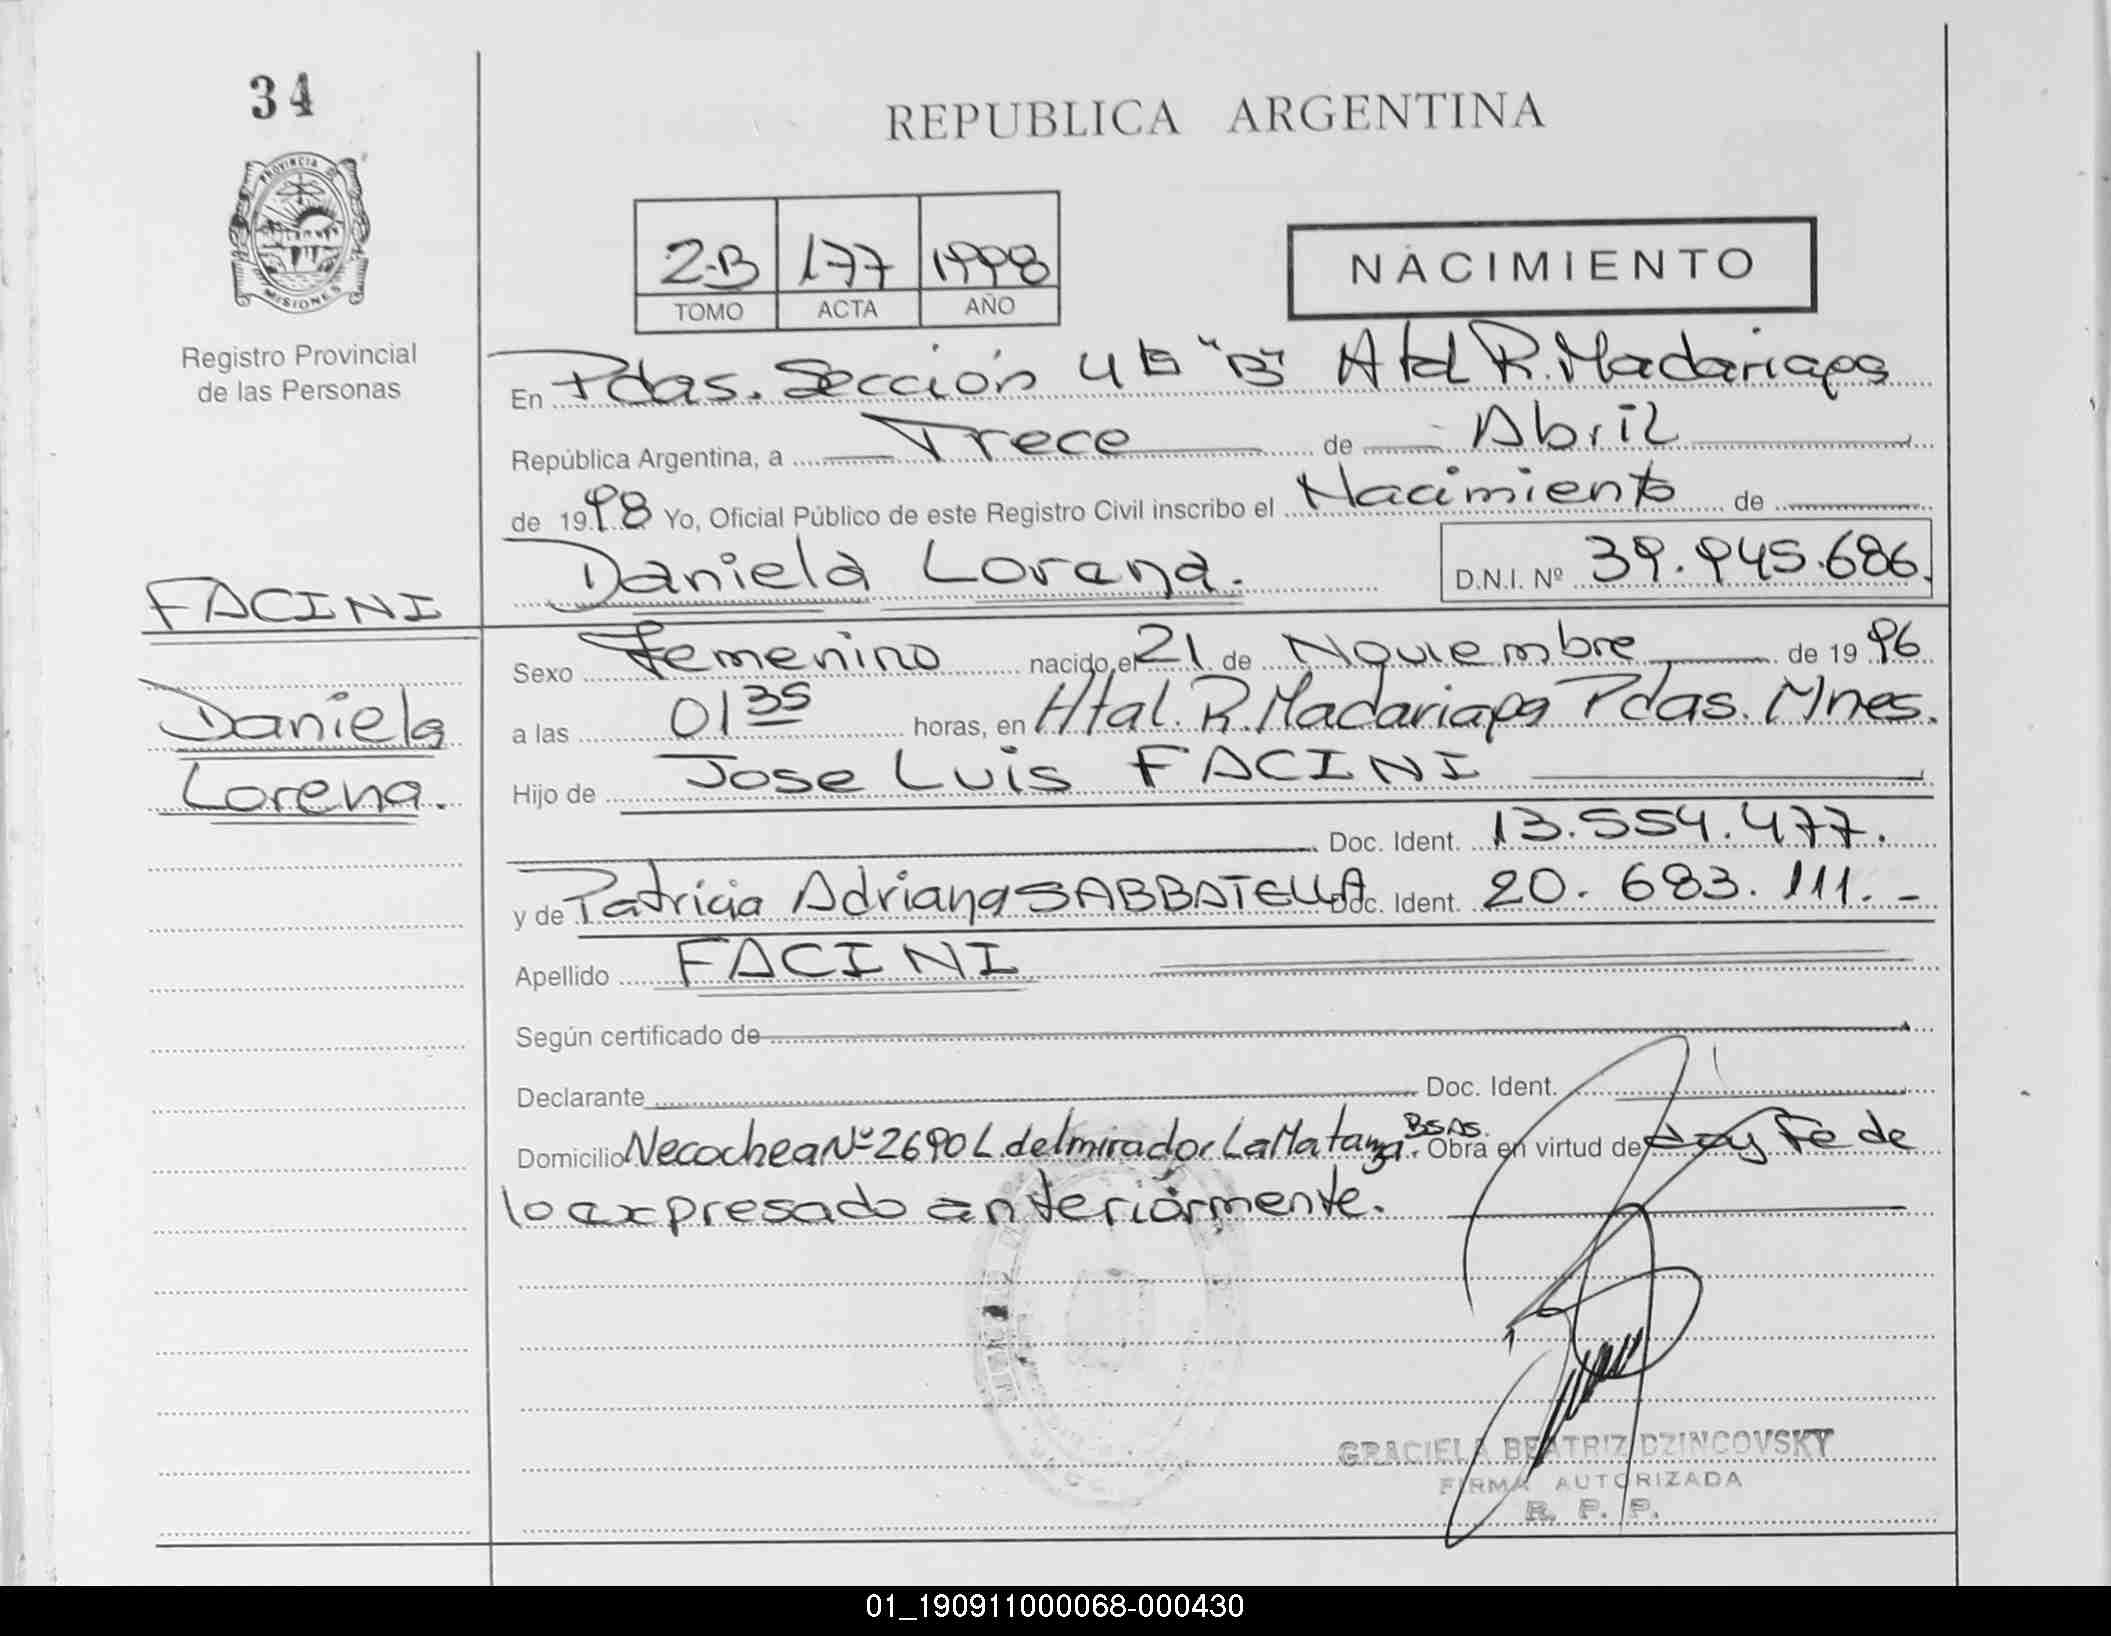 34
PROVINCIA D
MISIONES
Registro Provincial
de las Personas
FACINI
Daniela
Lorena.
REPUBLICA ARGENTINA
2-B 177 1998
TOMO ACTA AÑO
NACIMIENTO
En Pdas. Sección 4ta "B" Htal R. Madariaga
República Argentina, a Trece de Abril
de 1998 Yo, Oficial Público de este Registro Civil inscribo el Nacimiento de
Daniela Lorena. D.N.I. Nº 39.945.686.
Sexo Femenino nacido el 21 de Noviembre de 1996
a las 01 35 horas, en Htal. R. Madariaga Pdas. Mnes.
Hijo de Jose Luis FACINI
Doc. Ident. 13.554.477.
y de Patricia Adriana SABBATELLA Doc. Ident. 20.683.111.-
Apellido FACINI
Según certificado de
Declarante Doc. Ident.
Domicilio Necochea Nº 2690 L. del mirador La Matanza. Bs As. Obra en virtud de doy Fe de
lo expresado anteriormente.
GRACIELA BEATRIZ DZINCOVSKY
FIRMA AUTORIZADA
R. P. P.
01_190911000068-000430